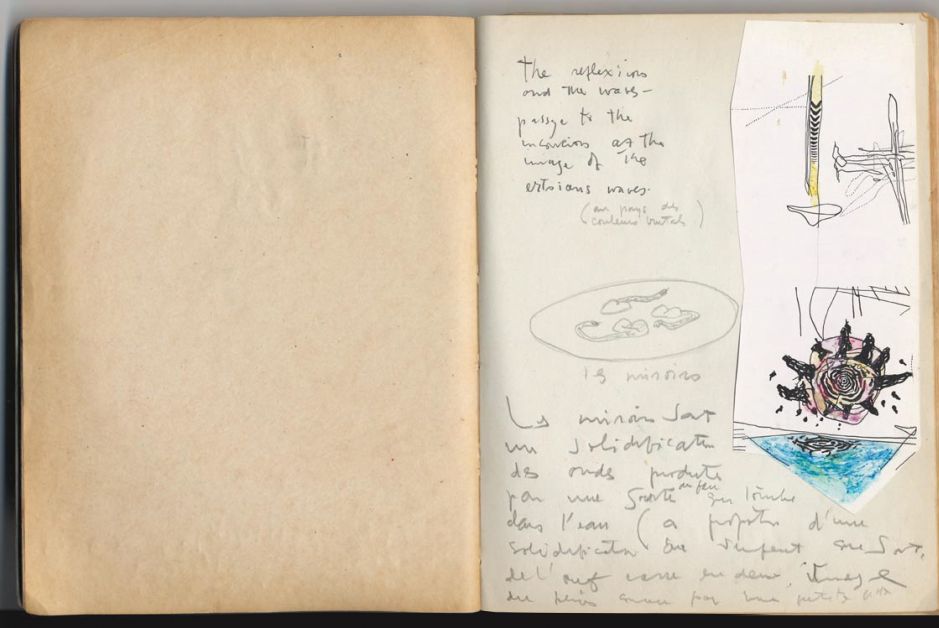 the reflexions
and the waves -
passge to the
as the
image of the
waves.
(au pays des
couleurs)
les miroirs
Les miroirs sont
une solidification
des ondes produites
par une goutte du feu qui tombe
dans l'eau (a propos d'une
solidification du serpent qui sort
de l'œuf casse en deux, image
du par une petite